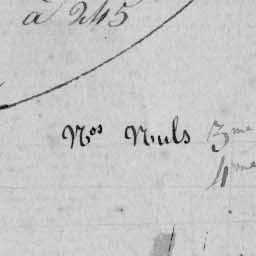 à 245
Nos Nuls 3me
4me